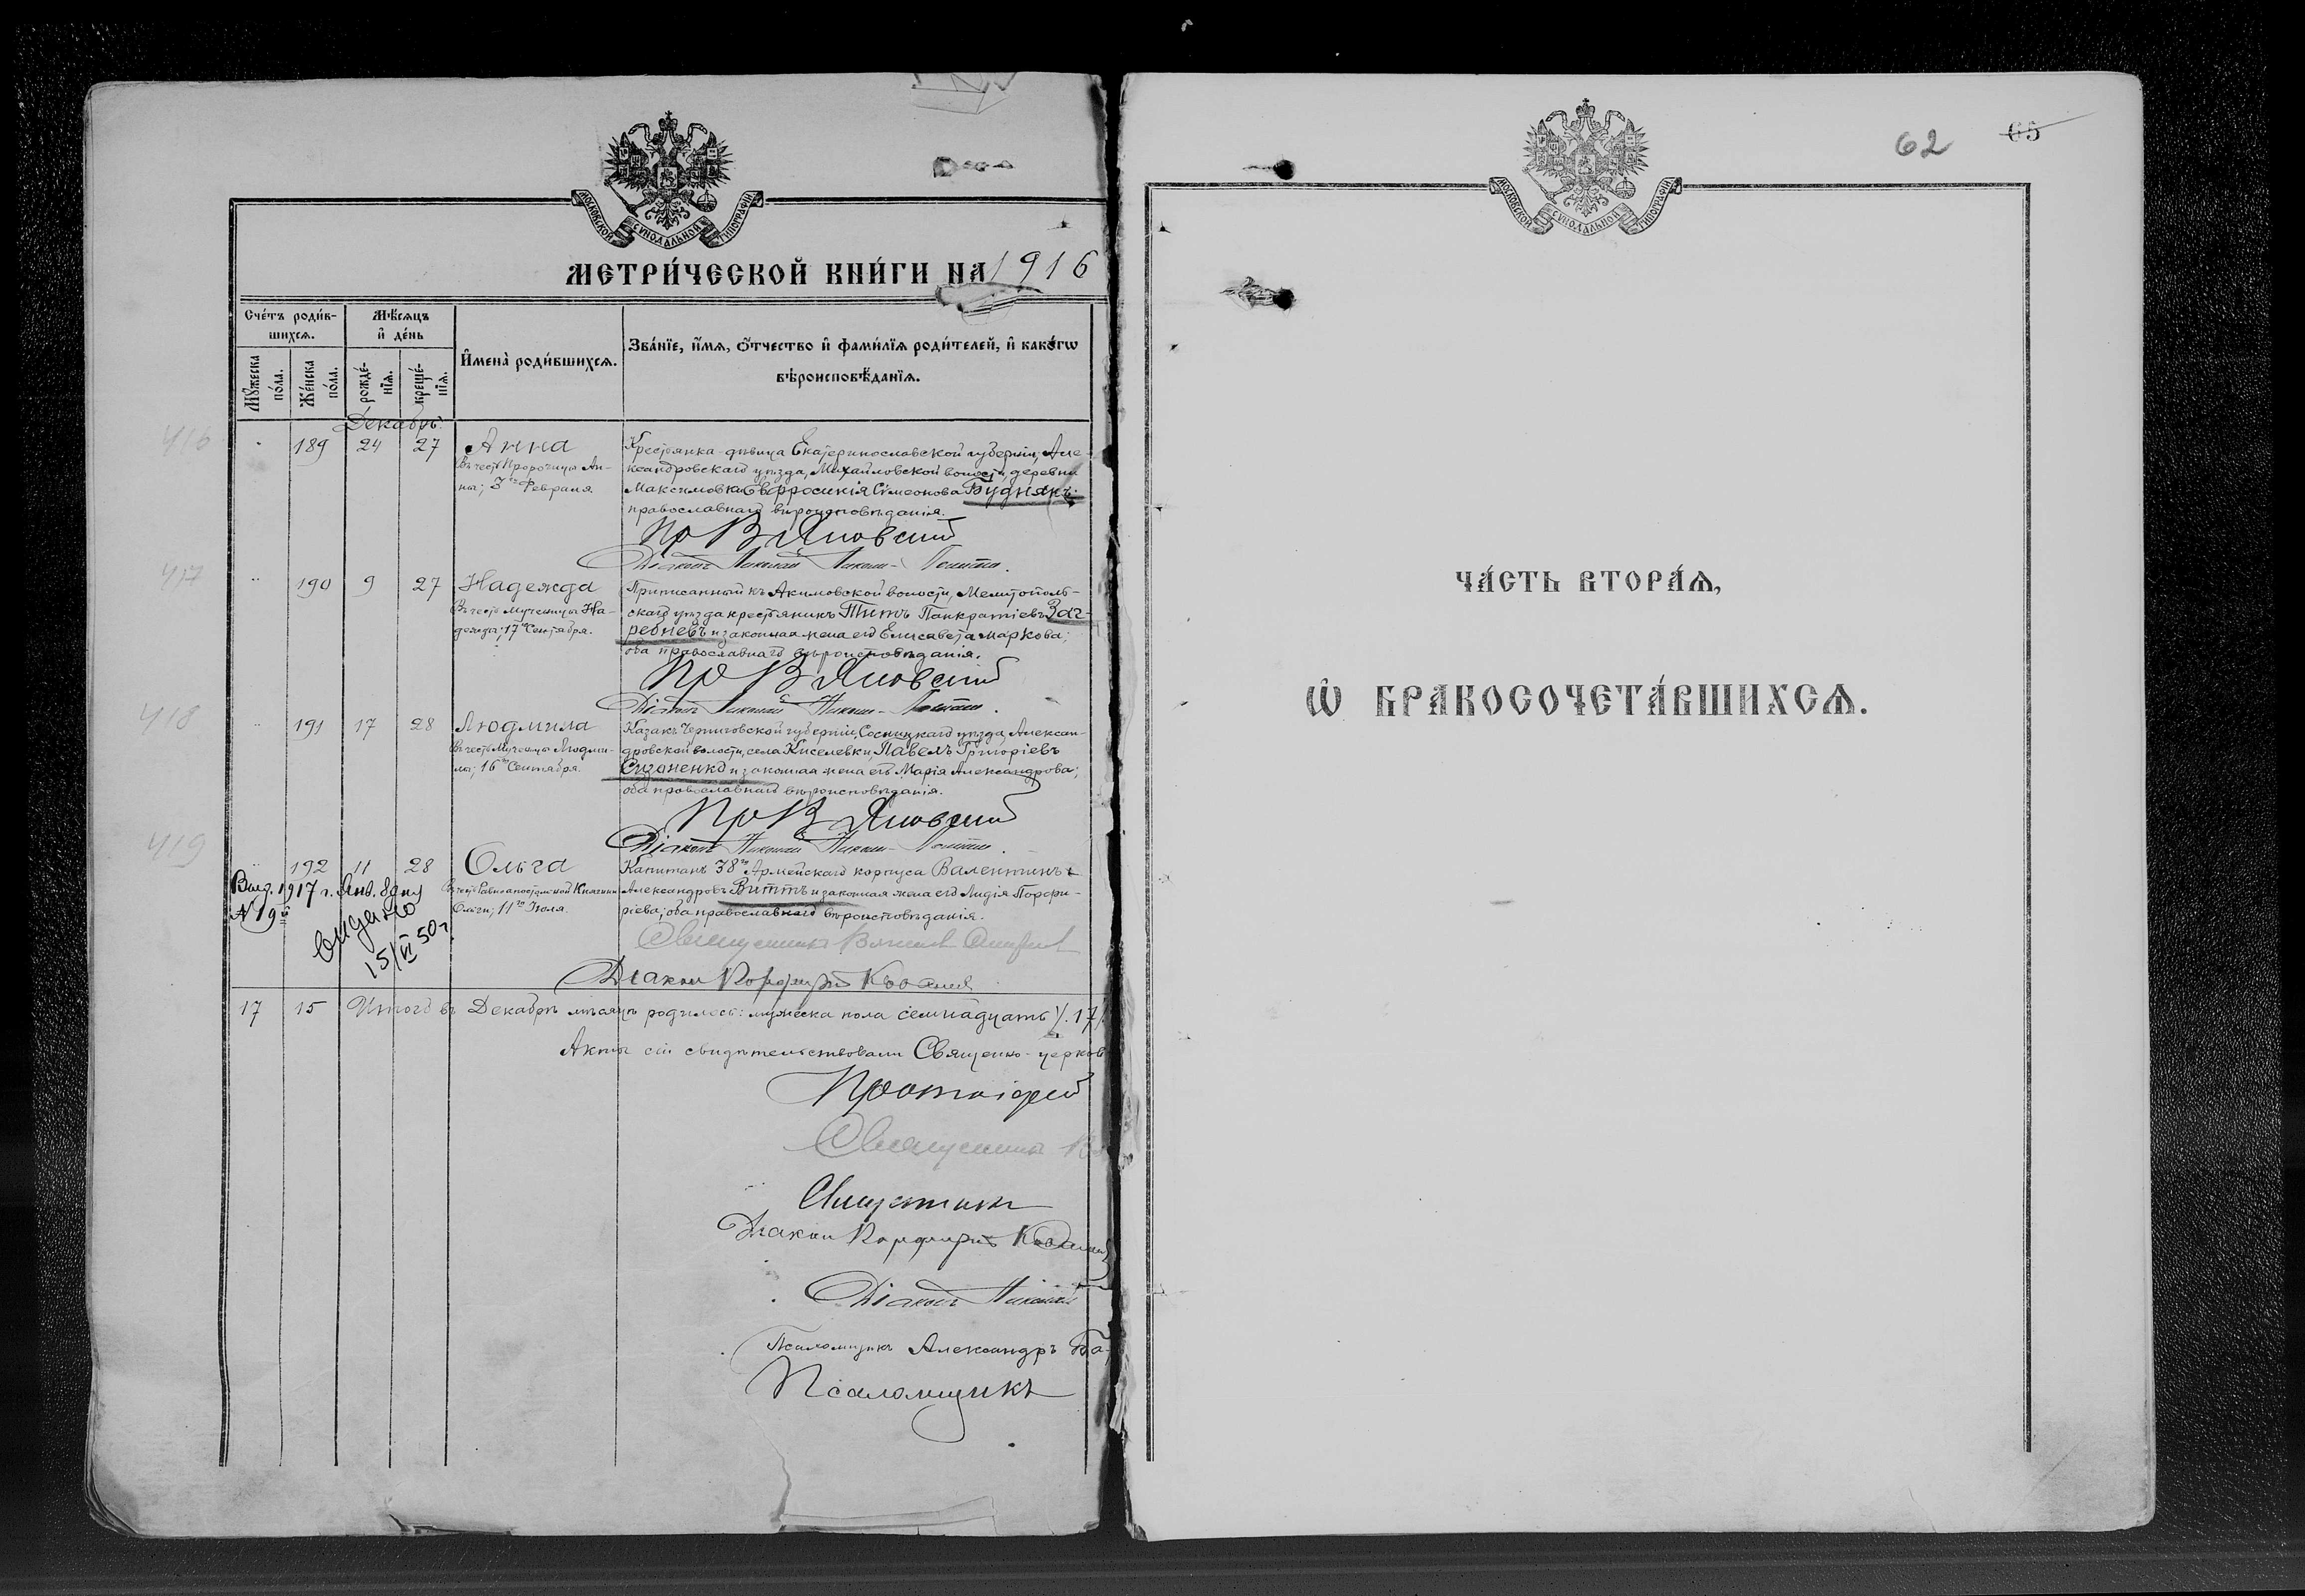 МОСКОВСКОЙ СѴНОДАЛЬНОЙ ТИПОГРАФІИ
МЕТРИ́ЧЕСКОЙ КНИ́ГИ НА 1916
Счётъ роди́в-
шихсѧ.
Мѣ́сѧцъ
и҆ де́нь
Мꙋ́жеска по́ла.
Же́нска по́ла.
рожде́-нїѧ.
креще́-нїѧ.
И҆мена̀ роди́вшихсѧ.
Зва́нїе, и҆́мѧ, ѻ҆́тчество и҆ фами́лїѧ роди́телей, и҆ како́гѡ
вѣроисповѣ́данїѧ.
Декабрь.
416
189 24 27 Анна
Въ честь Пророчицы Ан-
ны; 3го Февраля.
Крестьянка-дѣвица Екатеринославской губерніи, Але-
ксандровскаго уѣзда, Михайловской волости, деревни
Максимовки Евфросинія Сѵмеонова Буднякъ;
православнаго вѣроисповѣданія.
Пр В Яновский
Діаконъ Николай
417
190 9 27 Надежда
Въ честь Мученицы На-
дежды; 17го Сентября.
Приписанный къ Акимовской волости, Мелитополь-
скаго уѣзда крестьянинъ Титъ Панкратіевъ Заг-
ребневъ и законная жена его Елисавета Маркова;
оба православнаго вѣроисповѣданія.
Пр В Яновский
Діаконъ Николай
418
191 17 28 Людмила
Въ честь Мученицы Людми-
лы; 16го Сентября.
Казакъ Черниговской губерніи, Сосницкаго уѣзда, Алексан-
дровской волости, села Киселевки, Павелъ Григоріевъ
Сизоненко и законная жена его Марія Александрова;
оба православнаго вѣроисповѣданія.
Пр В Яновский
Діаконъ Николай
419
192 11 28 Ольга
Въ честь Равноапостольной Княгини
Ольги; 11го Іюля.
Капитанъ 38го Армейскаго корпуса Валентинъ
Александровъ Виттъ и законная жена его Лидія Порфи-
ріева; оба православнаго вѣроисповѣданія.
Выд. 1917 г. Янв. 8 дня
№ 19й
выдано
15/VI 50 г.
Священникъ
Діаконъ Порфирій
17 15 Итого въ Декабрѣ мѣсяцѣ родилось: мужеска пола семнадцать /.17/.
Акты сіи свидѣтельствовали Священно-церков
Протоіерей
Священникъ
Священникъ
Діаконъ Порфирій
Діаконъ Николай
Псаломщикъ Александръ Ба
Псаломщикъ
МОСКОВСКОЙ СѴНОДАЛЬНОЙ ТИПОГРАФІИ
62
65
ЧА́СТЬ ВТОРА́Ѧ,
Ѡ҆ БРАКОСОЧЕТА́ВШИХСѦ.